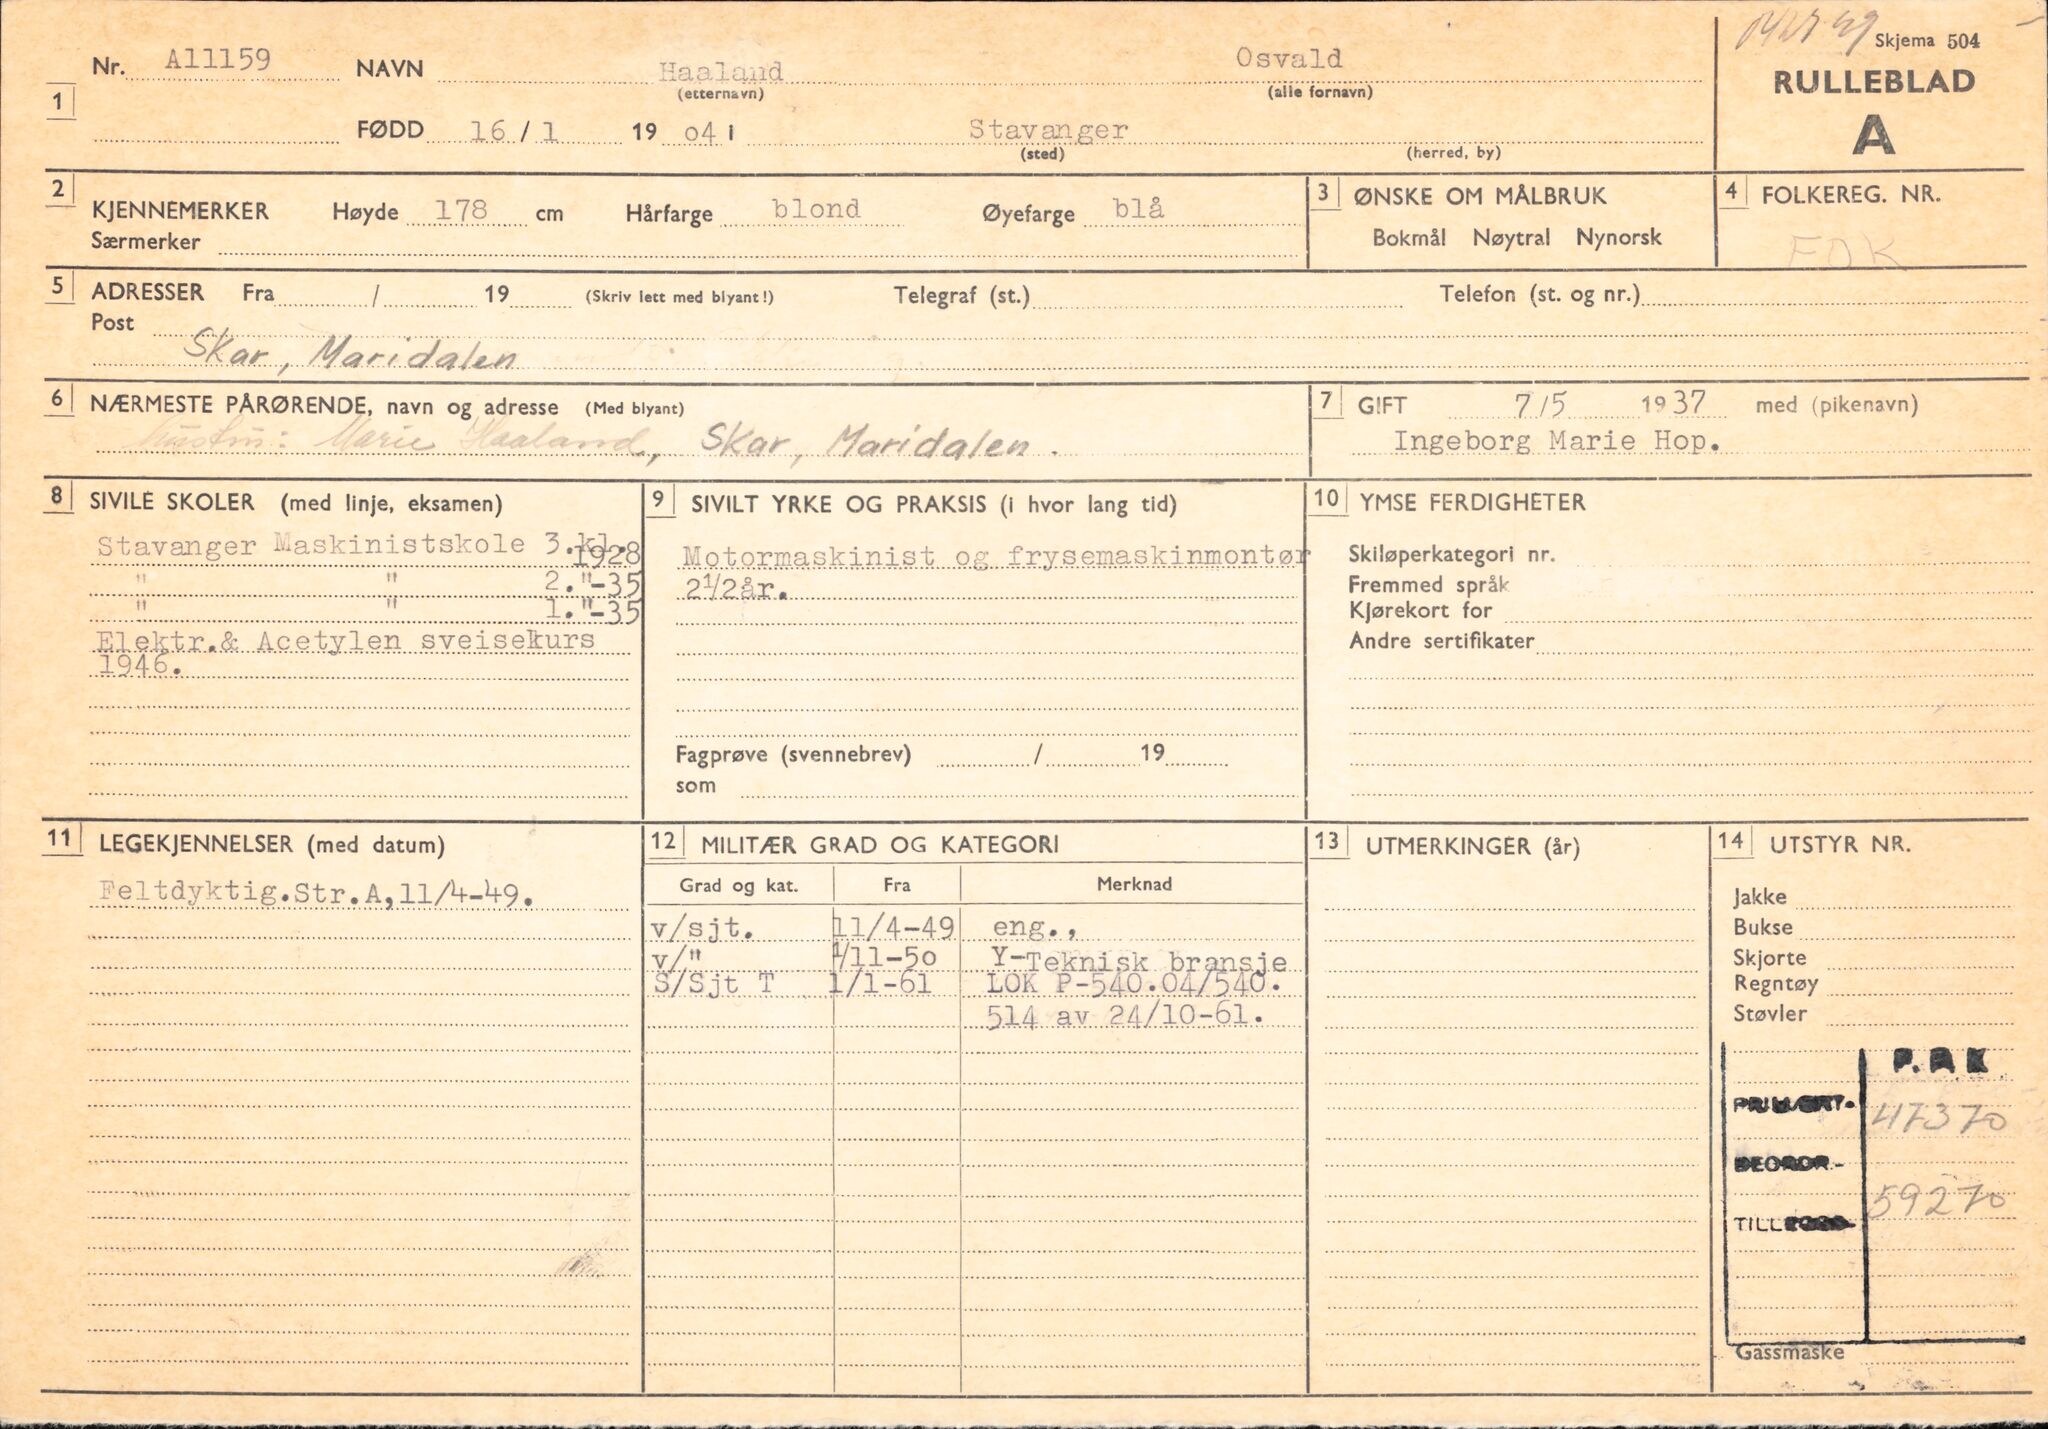 Skjema 504
RULLEBLAD
A
1
Nr. A11159 NAVN Haaland Osvald
(etternavn) (alle fornavn)
FØDD 16 / 1 19 o4 i Stavanger
(sted) (herred, by)
2
KJENNEMERKER Høyde 178 cm Hårfarge blond Øyefarge blå
Særmerker
3 ØNSKE OM MÅLBRUK
Bokmål Nøytral Nynorsk
4 FOLKEREG. NR.
FOK
5 ADRESSER Fra / 19 (Skriv lett med blyant!) Telegraf (st.) Telefon (st. og nr.)
Post
Skar, Maridalen
6 NÆRMESTE PÅRØRENDE, navn og adresse (Med blyant)
Hustru: Marie Haaland, Skar, Maridalen.
7 GIFT 7/5 1937 med (pikenavn)
Ingeborg Marie Hop.
8 SIVILE SKOLER (med linje, eksamen)
Stavanger Maskinistskole 3.kl.
1928
" " 2."-35
" " 1."-35
Elektr.& Acetylen sveisekurs
1946.
9 SIVILT YRKE OG PRAKSIS (i hvor lang tid)
Motormaskinist og frysemaskinmontør
2½år.
Fagprøve (svennebrev) / 19
som
10 YMSE FERDIGHETER
Skiløperkategori nr.
Fremmed språk
Kjørekort for
Andre sertifikater
11 LEGEKJENNELSER (med datum)
Feltdyktig.Str.A,11/4-49.
12 MILITÆR GRAD OG KATEGORI
Grad og kat. Fra Merknad
v/sjt. 11/4-49 eng.,
v/" 1/11-50 Y-Teknisk bransje
S/Sjt T 1/1-61 LOK P-540.04/540.
514 av 24/10-61.
13 UTMERKINGER (år)
14 UTSTYR NR.
Jakke
Bukse
Skjorte
Regntøy
Støvler
P.A.K
PRIMÆRT.
47370
BEORDR-
59270
Gassmaske